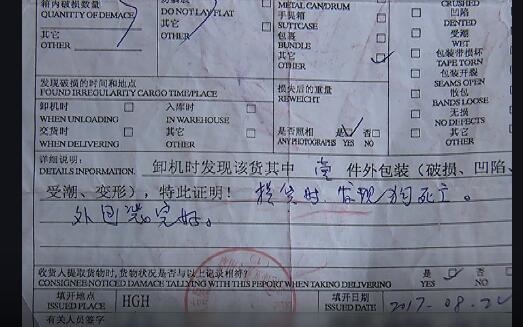 箱内破损数量
QUANITY OF DEMACE
其它
OTHER
DO NOT LAY FLAT
其它
OTHER
METAL CAN/DRUM
手提箱
SUITCASE
包裹
BUNDLE
其他
OTHER
CRUSHED
凹陷
DENTED
受潮
WET
包装带损坏
TAPE TORN
包装开裂
SEAMS OPEN
散包
BANDS LOOSE
无损
NO DEFECTS
其它
OTHER
发现破损的时间和地点
FOUND IRREGULARITY CARGO TIME/PLACE
损失后的重量
REWEIGHT
卸机时
WHEN UNLOADING
入库时
IN WAREHOUSE
交货时
WHEN DELIVERING
其它
OTHER
是否照相
ANY PHOTOGRAPHS
是
YES
否
NO
详细说明:
DETAILS INFORMATION.
卸机时发现该货其中 壹 件外包装(破损、凹陷、
受潮、变形),特此证明! 提货时发现狗死亡。
外包装完好。
收货人提取货物时,货物状况是否与以上记录相符?
CONSIGNEE NOTICED DAMAGE TALLYING WITH THIS PEPORT WHEN TAKING DELIVERING
是
YES
否
NO
填开地点
ISSUED PLACE
HGH
填开日期
ISSUED DATE
有关人员签字